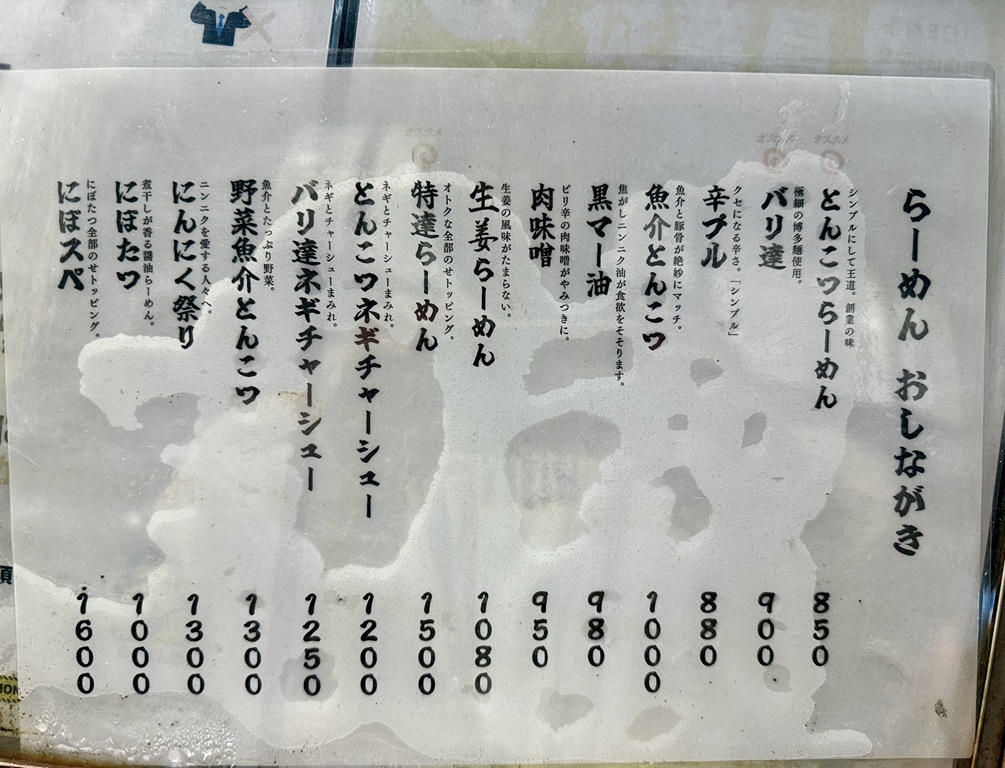 らーめん おしながき
シンプルにして王道。創業の味
とんこつらーめん
850
極細の博多麺使用。
バリ達
900
クセになる辛さ。「シンプル」
辛プル
880
魚介と豚骨が絶妙にマッチ。
魚介とんこつ
1000
焦がしニンニク油が食欲をそそります。
黒マー油
980
ピリ辛の肉味噌がやみつきに。
肉味噌
950
生姜の風味がたまらない。
生姜らーめん
1080
オトクな全部のせトッピング。
特達らーめん
1500
ネギとチャーシューまみれ。
とんこつネギチャーシュー
1200
ネギとチャーシューまみれ。
バリ達ネギチャーシュー
1250
魚介とたっぷり野菜。
野菜魚介とんこつ
1300
ニンニクを愛する人々へ。
にんにく祭り
1300
煮干しが香る醤油らーめん。
にぼたつ
1000
にぼたつ全部のせトッピング。
にぼスペ
1600